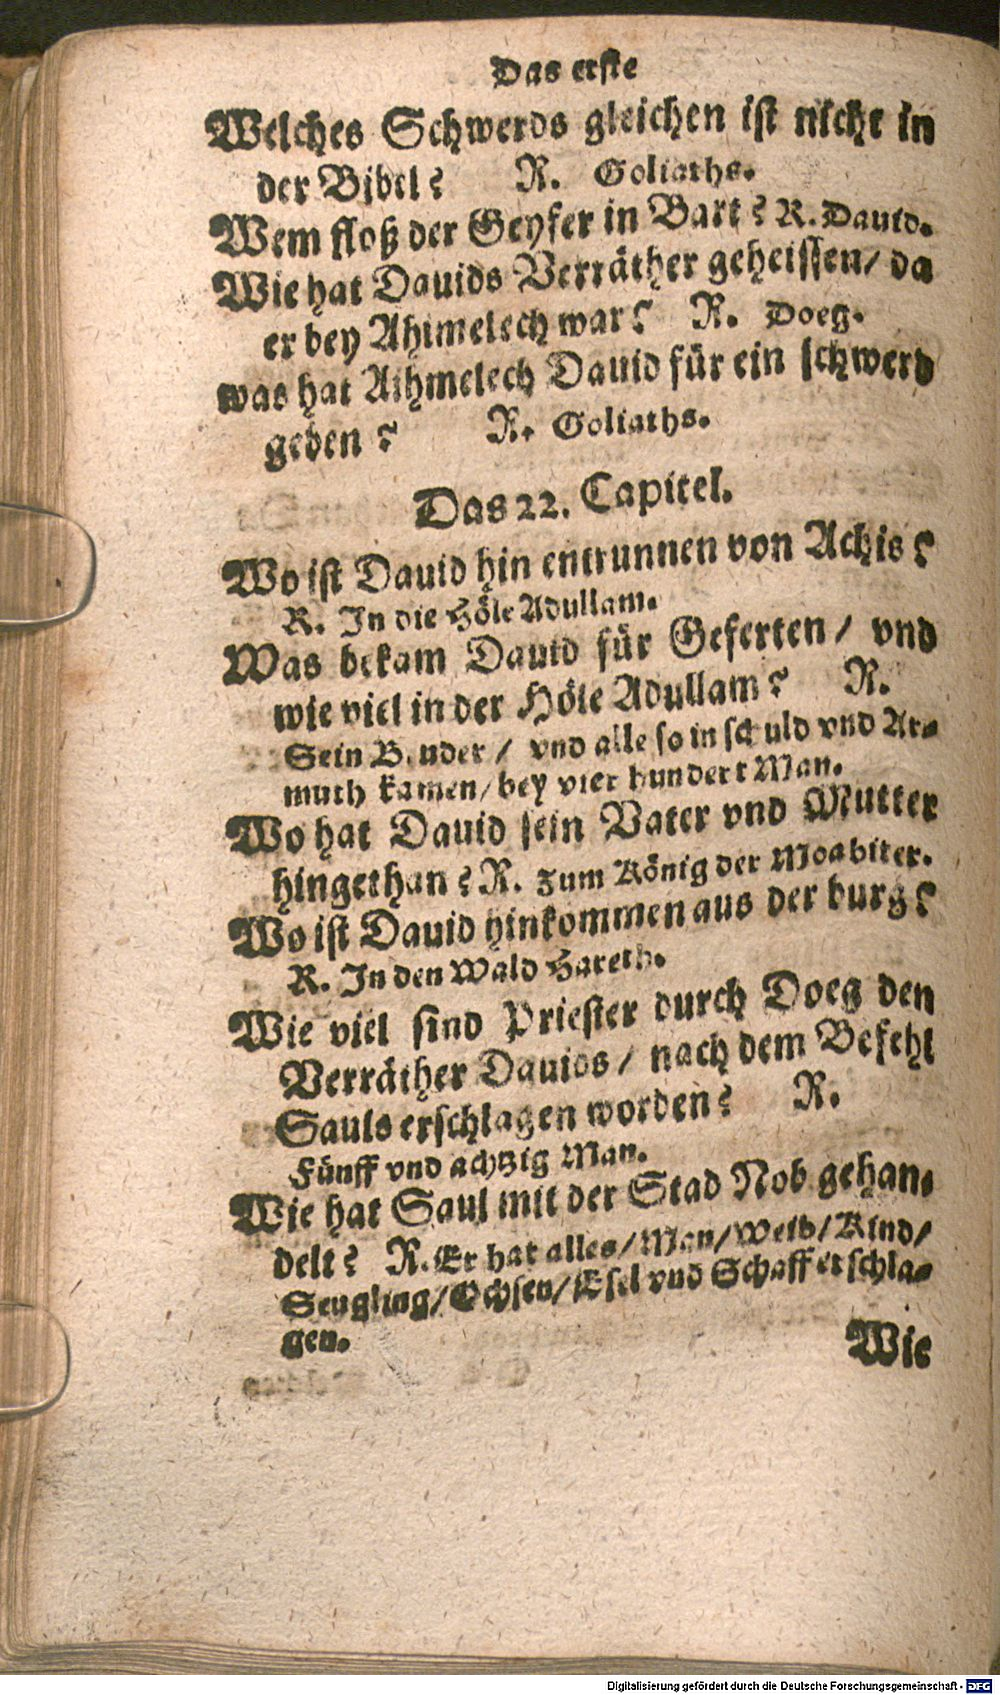 Das erste
Welches Schwerds gleichen ist nicht in
der Bibel? R. Goliaths.
Wem floß der Geyfer in Bart? R. Dauid.
Wie hat Dauids Verräther geheissen/ da
er bey Ahimelech war? R. Doeg.
was hat Aihmelech Dauid für ein schwerd
geben? R. Goliaths.
Das 22. Capitel.
Wo ist Dauid hin entrunnen von Achis?
R. In die Höle Adullam.
Was bekam Dauid für Geferten/ vnd
wie viel in der Höle Adullam? R.
Sein Bruder/ vnd alle so in schuld vnd Ar-
muth kamen/ bey vier hundert Man.
Wo hat Dauid sein Vater vnd Mutter
hingethan? R. zum König der Moabiter.
Wo ist Dauid hinkommen aus der burg?
R. In den Wald Hareth.
Wie viel sind Priester durch Doeg den
Verräther Dauids/ nach dem Befehl
Sauls erschlagen worden? R.
Fünff vnd achtzig Man.
Wie hat Saul mit der Stad Nob gehan-
delt? R. Er hat alles/ Man/ Weib/ Kind/
Seugling/ Ochsen/ Esel vnd Schaff erschla-
gen.
Wie
Digitalisierung gefördert durch die Deutsche Forschungsgemeinschaft - DFG